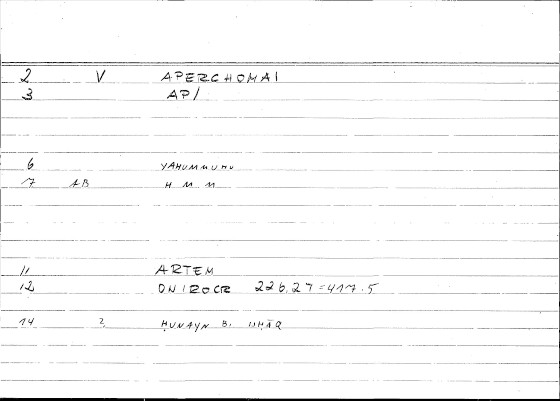 2 V APERCHOMAI
3 AP/
6 YAHUMMUHU
7 AB H M M
11 ARTEM
12 ONIROCR 226.27=417.5
14 2 ḤUNAYN B.